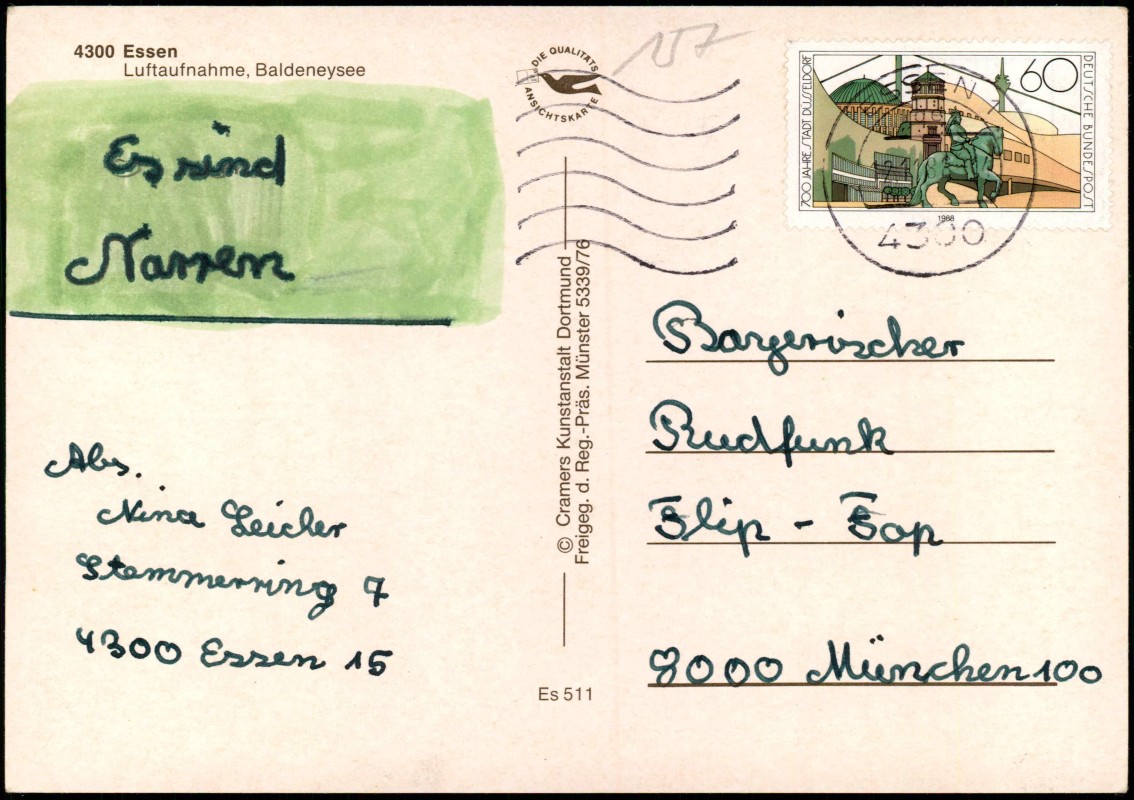 4300 Essen
Luftaufnahme, Baldeneysee
Es sind
Narren
Abs.
Nina Leicher
Stemmerring 7
4300 Essen 15
DIE QUALITÄTS
ANSICHTSKARTE
157
© Cramers Kunstanstalt Dortmund
Freigeg. d. Reg.-Präs. Münster 5339/76
Es 511
700 JAHRE STADT DÜSSELDORF
60
DEUTSCHE BUNDESPOST
1988
4300
Bayerischer
Rudfunk
Flip - Fop
8000 München 100